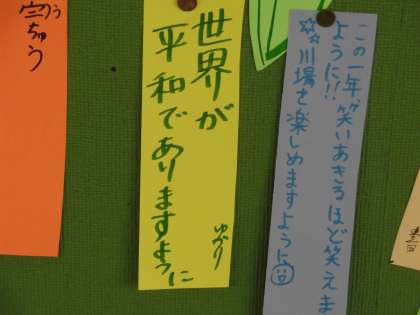 この一年、笑いあきるほど笑えま
ように!!
川場を楽しめますように
世界が
平和でありますように
ゆかり
ちゅう